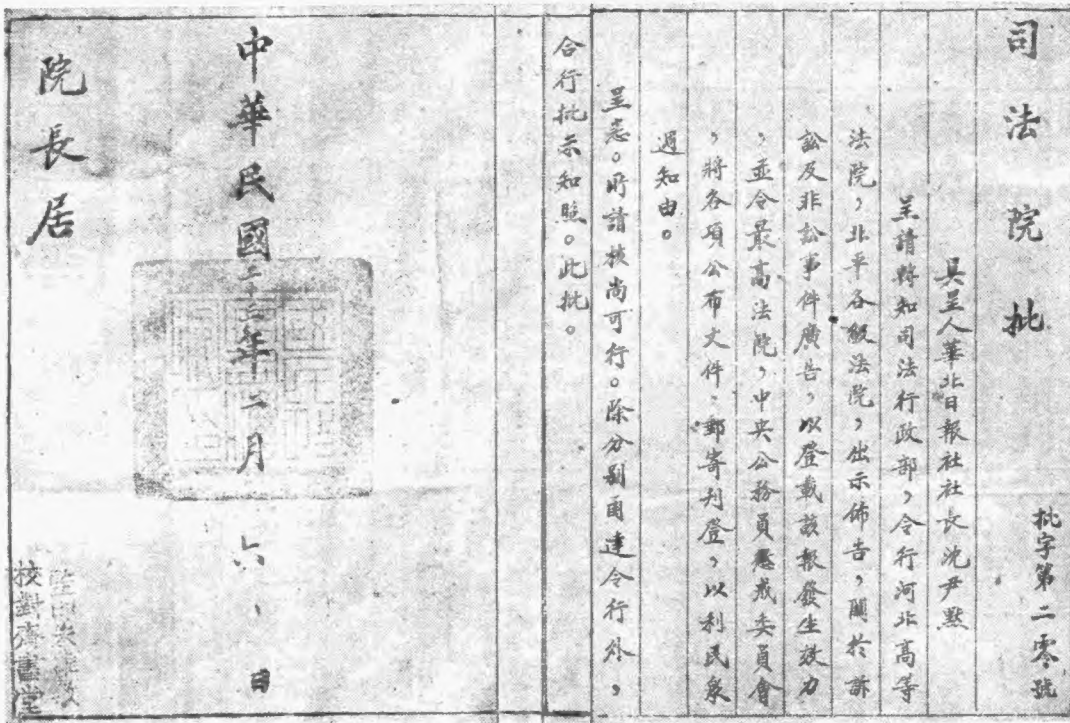 司法院批
批字第二零號
具呈人華北日報社社長沈尹默
呈請轉知司法行政部，令行河北高等
法院，北平各級法院，出示佈告，關於訴
訟及非訟事件廣告，以登載該報發生效力
，並令最高法院，中央公務員懲戒委員會
，將各項公布文件，郵寄刊登，以利民眾
週知由。
呈悉。所請核尚可行。除分別函達令行外，
合行批示知照。此批。
中華民國二十三年二月六日
院長居
監印
校對齊書堂